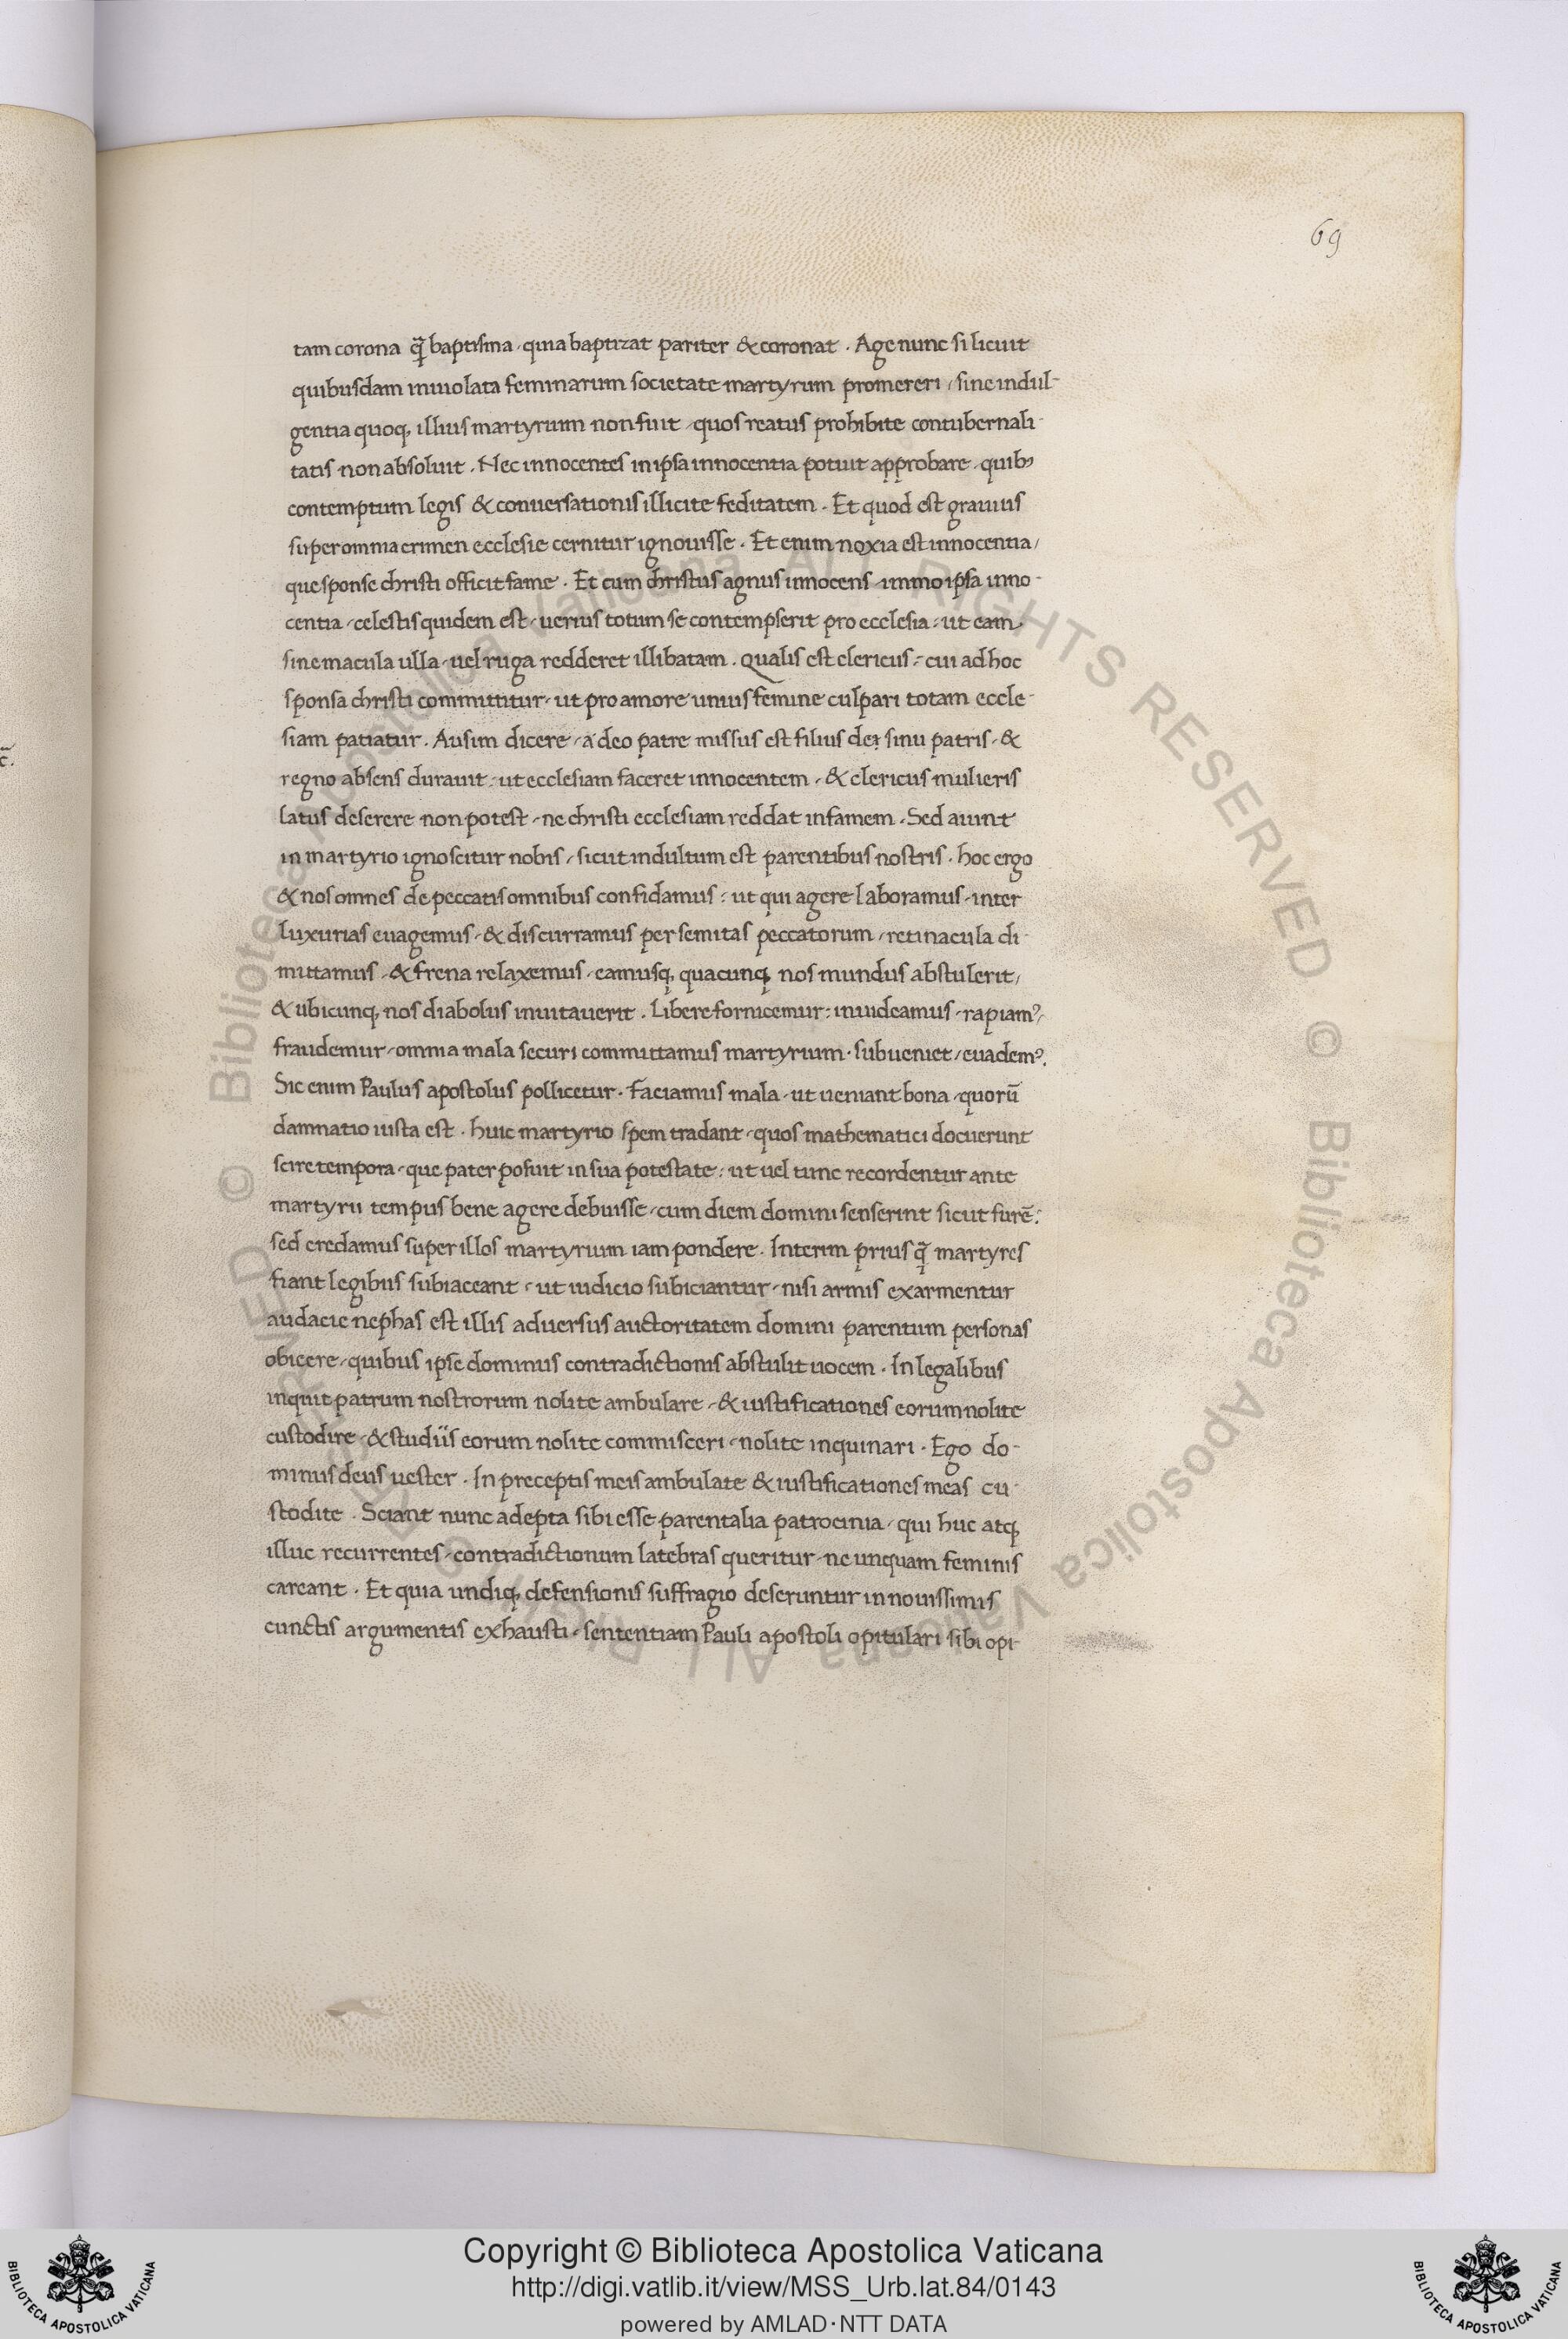 69
tam corona q̃ baptisma · quia baptizat pariter & coronat . Age nunc si licuit
quibusdam inuiolata feminarum societate martyrum promereri / sine indul-
gentia quoq; illius martyrium non fuit / quos reatus prohibite contubernali-
tatis non absoluit . Nec innocentes in ipsa innocentia potuit approbare . quib9
contemptum legis & conuersationis illicite feditatem . Et quod est grauius
super omnia crimen ecclesie cernitur ignouisse . Et enim noxia est innocentia /
que sponse christi officit fame . Et cum christus agnus innocens immo ipsa inno-
centia / celestis quidem est / uerius totum se contempserit pro ecclesia : ut eam
sine macula ulla / uel ruga redderet illibatam . Qualis est clericus : cui ad hoc
sponsa christi committitur / ut pro amore unius femine culpari totam eccle-
siam patiatur . Ausim dicere / a deo patre missus est filius dei sinu patris / &
regno absens durauit : ut ecclesiam faceret innocentem / & clericus mulieris
latus deserere non potest / ne christi ecclesiam reddat infamem . Sed aiunt
in martyrio ignoscitur nobis / sicut indultum est parentibus nostris . hoc ergo
& nos omnes de peccatis omnibus confidamus : ut qui agere laboramus / inter
luxurias euagemus / & discurramus per semitas peccatorum / retinacula di-
mittamus / & frena relaxemus / eamusq; quacunq; nos mundus abstulerit /
& ubicunq; nos diabolus inuitauerit . Libere fornicemur : inuideamus / rapiam9 /
fraudemur / omnia mala securi committamus martyrium · subueniet / euadem9 .
Sic enim Paulus apostolus pollicetur . Faciamus mala / ut ueniant bona / quorū
damnatio iusta est . huic martyrio spem tradant / quos mathematici docuerunt
scire tempora / que pater posuit in sua potestate : ut uel tunc recordentur ante
martyrii tempus bene agere debuisse / cum diem domini senserint sicut furē :
sed credamus super illos martyrum iam pondere . Interim prius q̃ martyres
fiant legibus subiaceant / ut iudicio subiciantur / nisi armis exarmentur
audacie nephas est illis aduersus auctoritatem domini parentum personas
obicere / quibus ipse dominus contradictionis abstulit uocem . In legalibus
inquit patrum nostrorum nolite ambulare / & iustificationes eorum nolite
custodire / & studiis eorum nolite commisceri / nolite inquinari . Ego do-
minus deus uester . In preceptis meis ambulate & iustificationes meas cu-
stodite . Sciant nunc adepta sibi esse parentalia patrocinia / qui huc atq;
illuc recurrentes / contradictionum latebras queritur / ne unquam feminis
careant . Et quia undiq; defensionis suffragio deseruntur in nouissimis
cunctis argumentis exhausti / sententiam Pauli apostoli opitulari sibi opi-
Copyright © Biblioteca Apostolica Vaticana
http://digi.vatlib.it/view/MSS_Urb.lat.84/0143
powered by AMLAD·NTT DATA